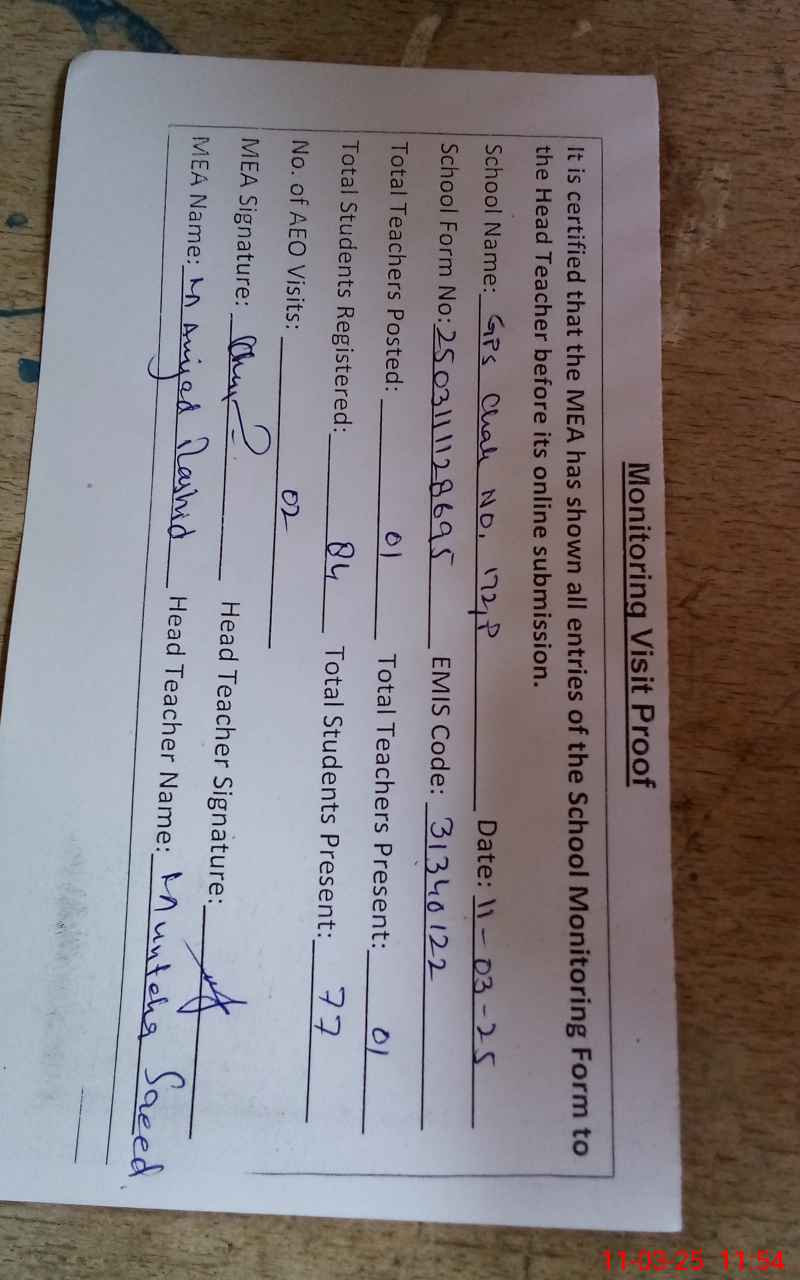 Monitoring Visit Proof
It is certified that the MEA has shown all entries of the School Monitoring Form to
the Head Teacher before its online submission.
School Name: GPS Chak No, 172,P Date: 11-03-25
School Form No: 250311128695 EMIS Code: 31340122
Total Teachers Posted: 01 Total Teachers Present: 01
Total Students Registered: 84 Total Students Present: 77
No. of AEO Visits: 02
MEA Signature: Head Teacher Signature:
MEA Name: M Amjad Rashid Head Teacher Name: Munteha Saeed
11-03-25 11:54